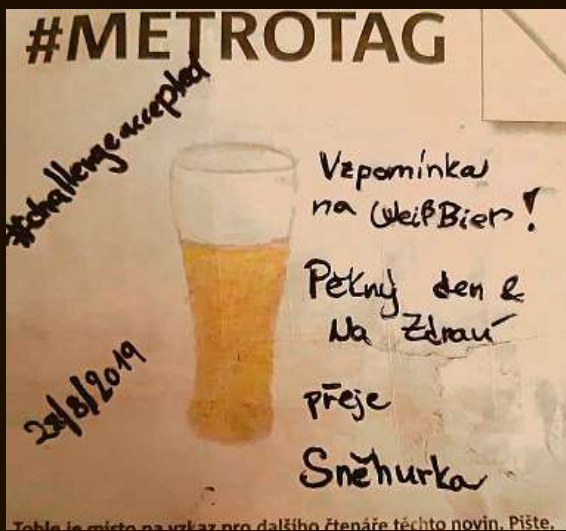 #METROTAG
#challengeaccepted
Vzpomínka
na WeißBier!
Pěkný den &
Na Zdraví
28/8/2019
přeje
Sněhurka
Tohle je místo na vzkaz pro dalšího čtenáře těchto novin. Pište,